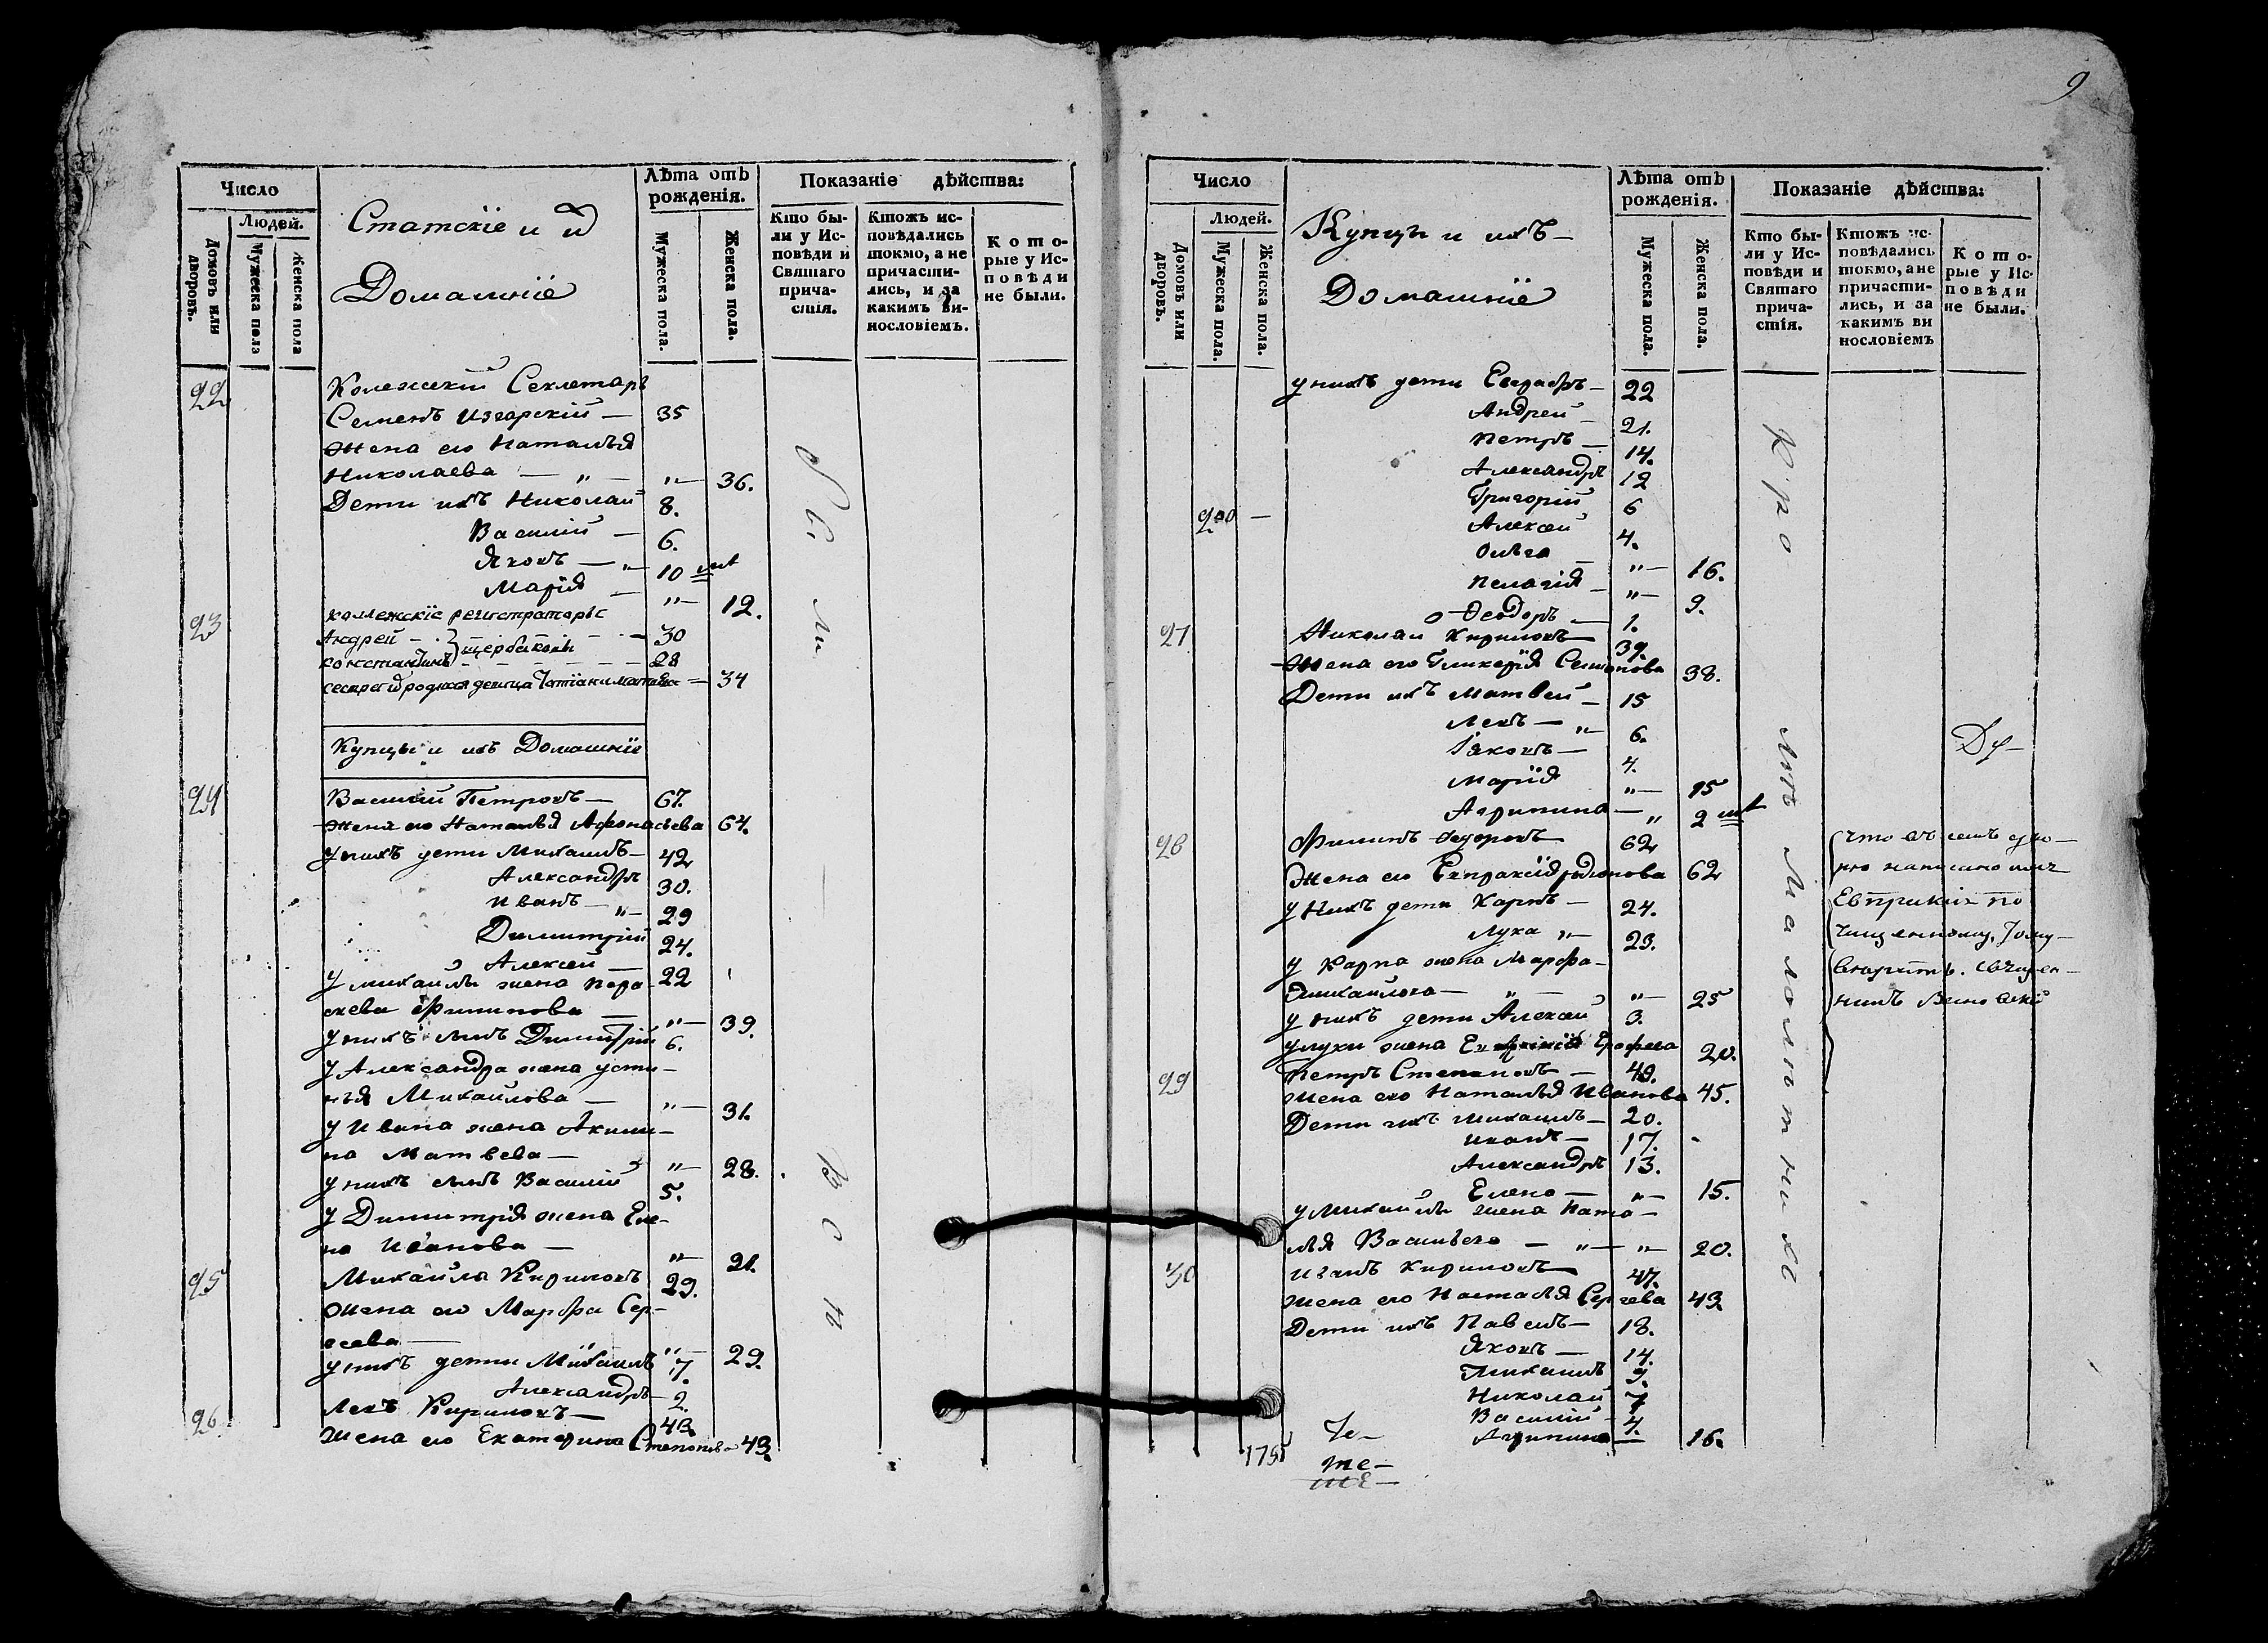 Число
Людей.
Домовъ или дворовъ.
Мужеска пола
Женска пола
Статскіе и
Домашніе
Лѣта отъ рожденія.
Мужеска пола.
Женска пола.
Показаніе дѣйства:
Кто бы-
ли у Ис-
повѣди и
Святаго
прича-
стія.
Ктожъ ис-
повѣдались
токмо, а не
причасти-
лись, и за
какимъ ви-
нословіемъ.
Кото-
рые у Ис-
повѣди
не были.
22 Колежскій Секлетарь
Семенъ Изгарскій — 35
Жена его Наталья
Николаева — „ — „ — 36.
Дети ихъ Николай 8.
Василій — 6.
Яковъ — „ 10
Марія — „ — 12.
23 коллежскіе регистраторы
Андрей — 30
константинъ 28
34
Купцы и ихъ Домашніе
24 Василій Петровъ — 67.
Жена его Наталья Афонасьева 64.
у нихъ дети Михаилъ — 42
Александръ 30.
Иванъ — „ — 29
Димитрій 24.
Алексей — 22
у михайлы жена пара-
скева Филипова — „ — 39.
у нихъ сынъ Димитрій 6.
у Александра жена усти-
нья Михайлова — „ — 31.
у Ивана жена Акили-
на Матвева — „ — 28.
у нихъ сынъ Василій 5.
у Димитрія жена Еле-
на Иванова — „ — 21.
25 Михайла Кириловъ 29.
Жена его Марфа Сер-
геева — „ — 29.
у нихъ дети Михаилъ 7.
Александръ — 2.
26. Левъ Кириловъ — 43.
Жена его Екатерина Степанова 43.
9
Число
Людей.
Домовъ или дворовъ.
Мужеска пола.
Женска пола.
Купцы и ихъ —
Домашніе
Лѣта отъ рожденія.
Мужеска пола.
Женска пола.
Показаніе дѣйства:
Кто бы-
ли у Ис-
повѣди и
Святаго
прича-
стія.
Ктожъ ис-
повѣдались
токмо, а не
причасти-
лись, и за
какимъ ви
нословіемъ
Кото-
рые у Ис-
повѣди
не были.
у нихъ дети Евграфъ — 22
Андрей 21.
петръ — 14.
Александръ 12
Григорій 6
200 — Алексей 4.
Ольга — „ — 16.
пелагія — „ — 9.
Феодоръ — 1.
27 Николай Кириловъ 39.
Жена его Гликерія Семонова 38.
Дети ихъ Матвей — 15
Левъ — „ 6.
Іяковъ — 4.
марія „ — 15
Агрипина — „ 2
28 Филипъ Федоровъ 62
Жена его 62
у нихъ дети Карпъ — 24.
Лука „ — 23.
у Карпа жена Марфа —
михайлова — „ — „ — 25
у нихъ дети Алексей 3.
у луки жена Ерофеева 20.
29 Петръ Степановъ — 49.
Жена его Наталья Иванова 45.
Дети ихъ михаилъ — 20.
иванъ — 17.
Александръ 13.
Елена — „ — 15.
у Михайлы жена Ната —
лья Васильева — „ — „ — 20.
30 Иванъ Кириловъ 47.
Жена его Наталья Сергеева 43
Дети ихъ Павелъ — 18.
Яковъ — 14.
Михаилъ 9.
Николай 7
Василій — 4.
Агрипина — 16.
175